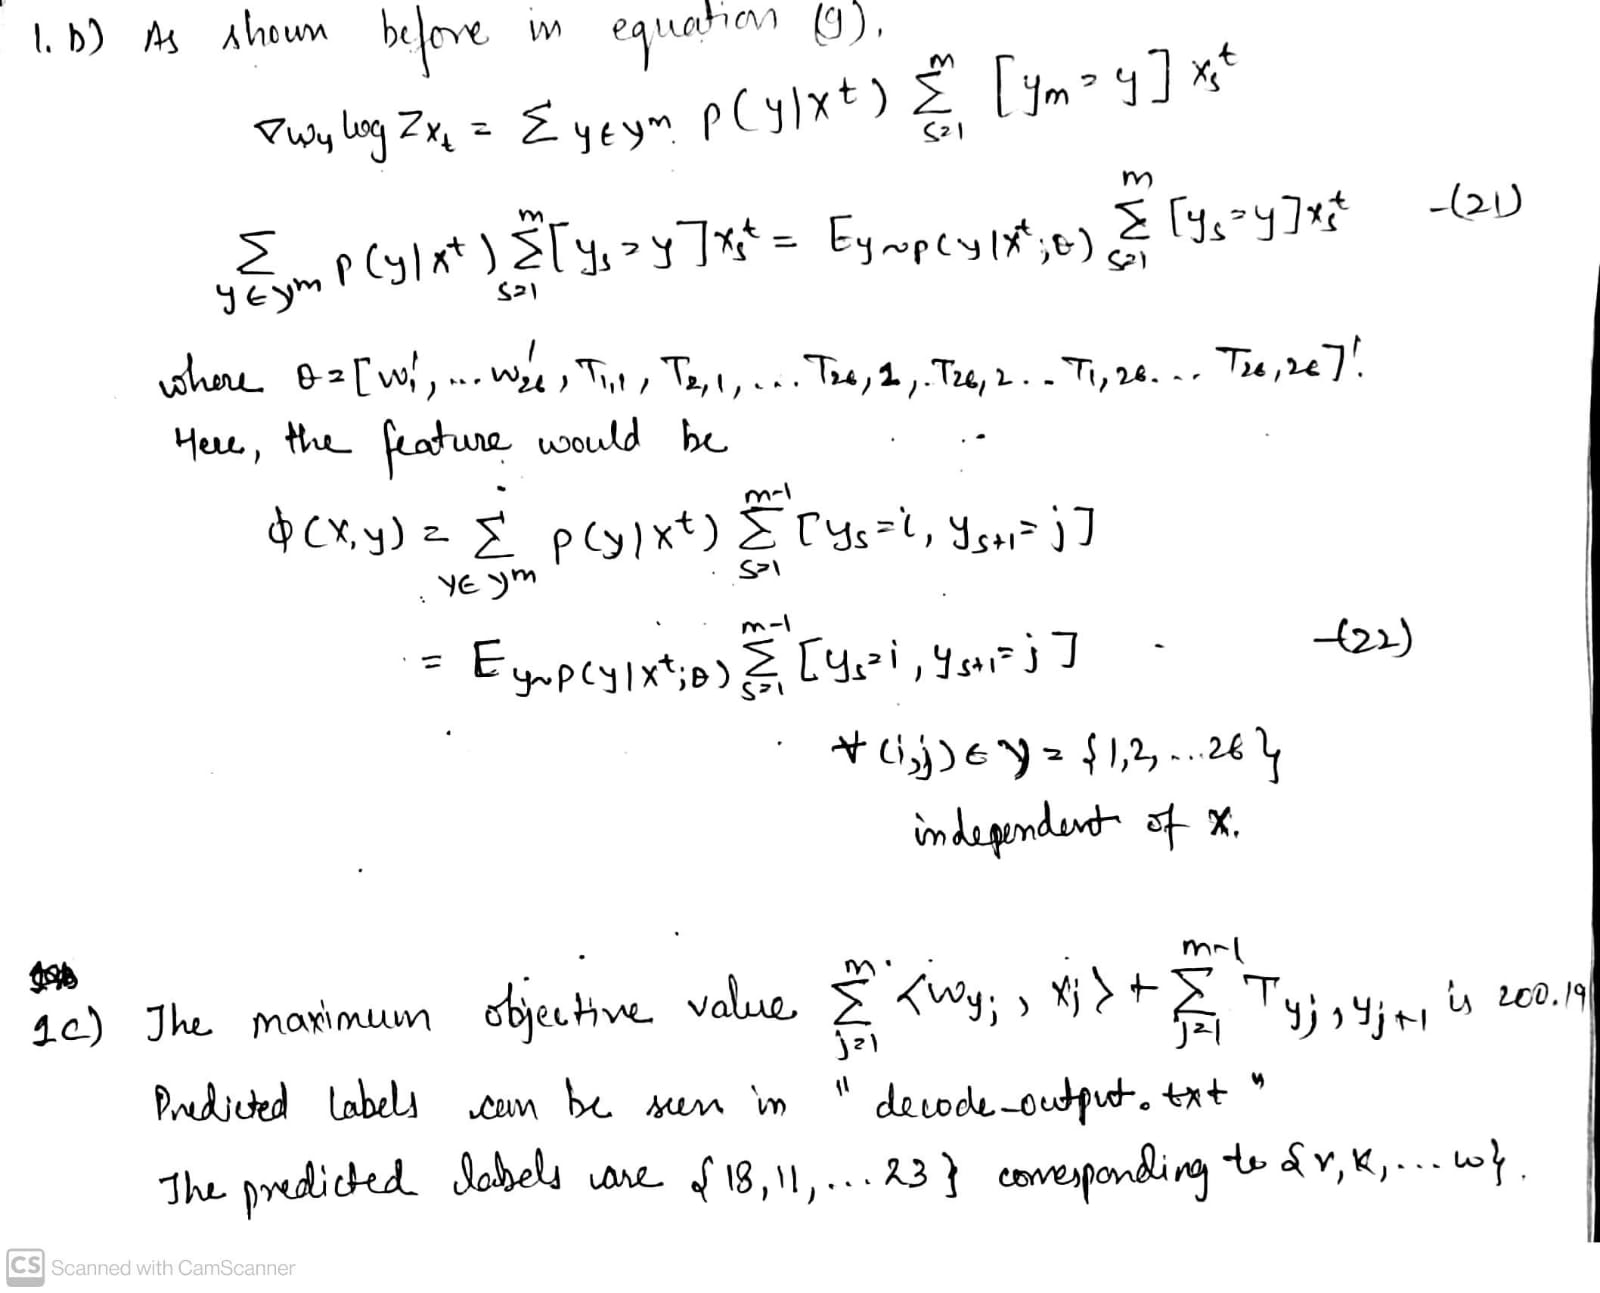 1. b) As shown before in equation (9),
∇wy log Zxt = Σ y∈yᵐ p(y|xᵗ) Σ_{s=1}^{m} [ym = y] xsᵗ
Σ_{y∈yᵐ} p(y|xᵗ) Σ_{s=1}^{m} [ys = y] xsᵗ = E_{y~p(y|xᵗ;θ)} Σ_{s=1}^{m} [ys = y] xsᵗ -(21)
where θ = [w1', ... w26', T1,1, T2,1, ... T26,1, . T26,2 . . T1,26 ... T26,26]'.
Here, the feature would be
φ(X,y) = Σ_{y∈yᵐ} p(y|xᵗ) Σ_{s=1}^{m-1} [ys = i, ys+1 = j]
= E_{y~p(y|xᵗ;θ)} Σ_{s=1}^{m-1} [ys = i, ys+1 = j] -(22)
∀ (i,j) ∈ Y = {1,2, ... 26}
independent of x.
1c) The maximum objective value Σ_{j=1}^{m} <wyj, xj> + Σ_{j=1}^{m-1} Tyj,yj+1 is 200.19
Predicted labels can be seen in "decode_output.txt"
The predicted labels are {18, 11, ... 23} corresponding to {r, k, ... w}.
CS Scanned with CamScanner